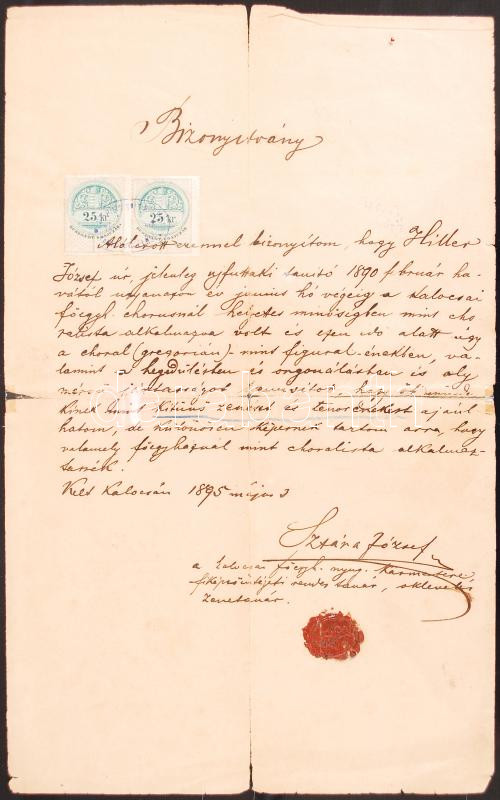 Bizonyitvány
25 kr 25 kr
Alólirott ezennel bizonyitom, hogy Hiller
József úr, jelenleg ujfuttaki tanitó 1890 február ha-
vától ugyanazon év junius hó végéig a kalocsai
főegyh. chorusnál helyettes minőségben mint cho
ralista alkalmazva volt és ezen idő alatt úgy
a choral (gregorián) - mint figural-énekben, va-
lamint a hegedülésben és orgonálásban is oly
jártasságot tanusitott, hogy őt minden
kinek mint kitünő zenészt és tenoristát ajánl
hatom, de különösen képesnek tartom arra, hogy
valamely főegyháznál mint choralista alkalmaz-
tassék.
Kelt Kalocsán 1895 május 3
Sztára József
a kalocsai főegyh. nyug. karmestere,
képezőintézeti rendes tanár, okleveles
zenetanár.